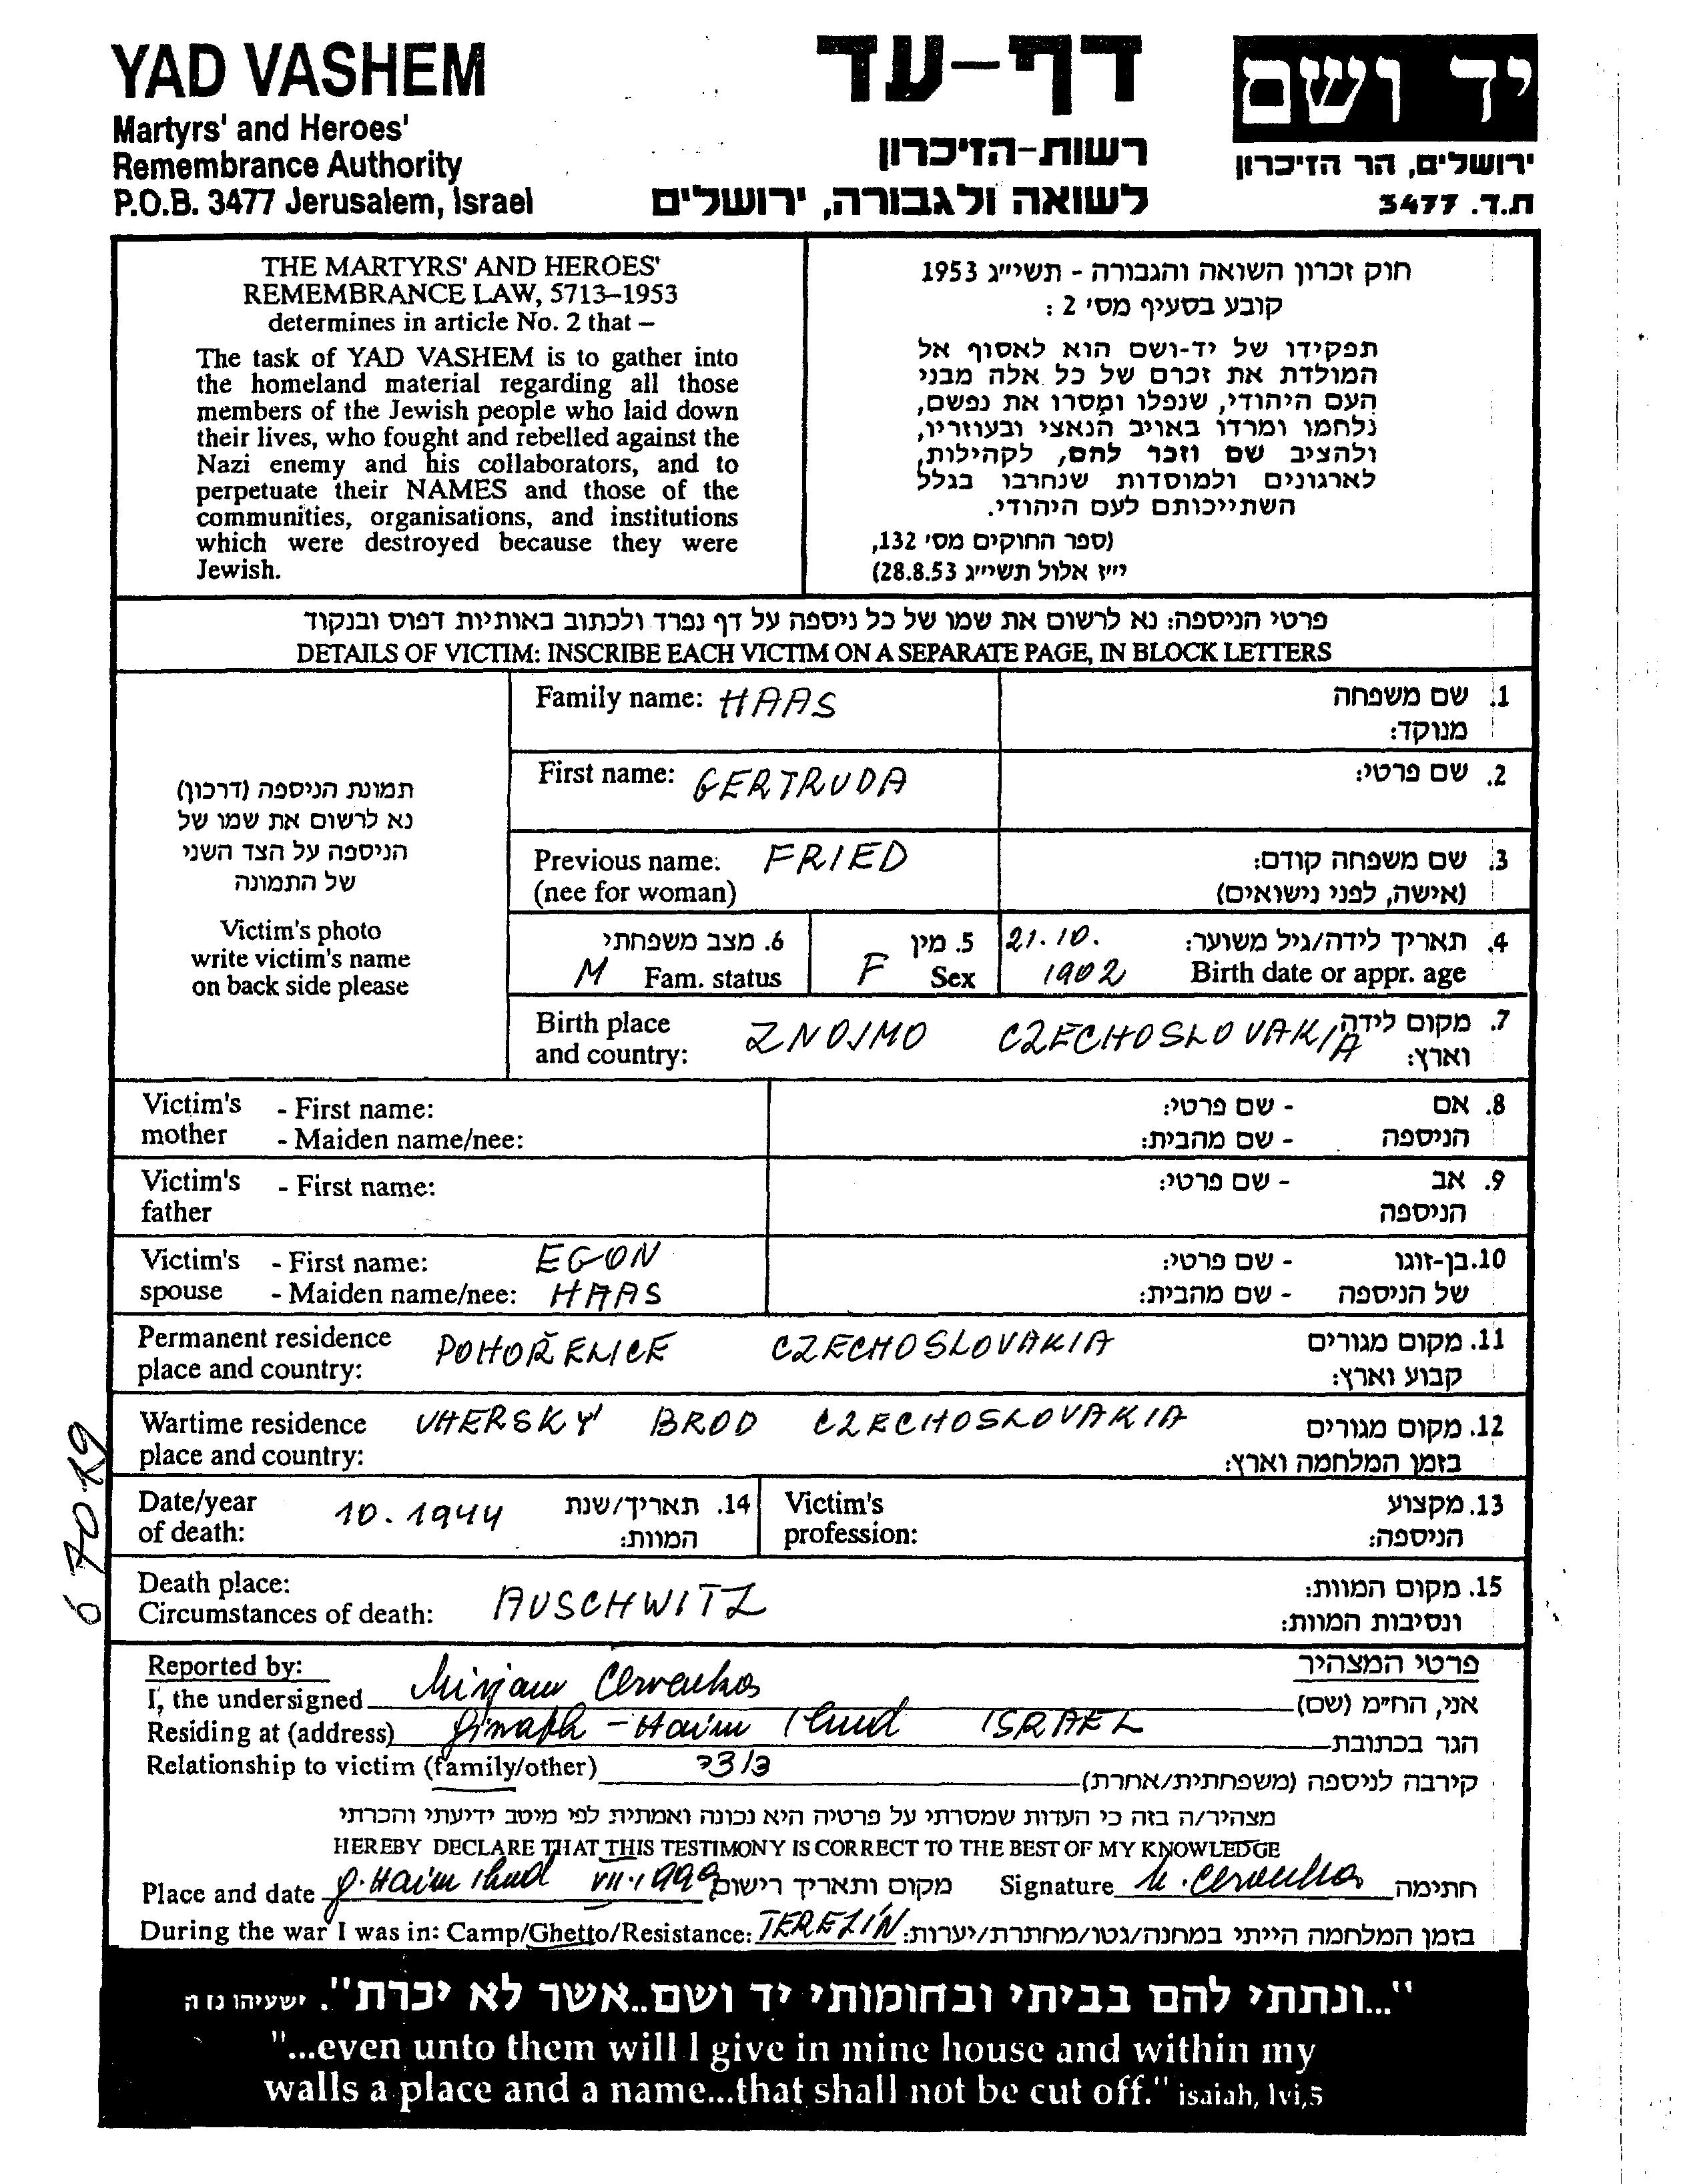 YAD VASHEM
Martyrs' and Heroes'
Remembrance Authority
P.O.B. 3477 Jerusalem, Israel
דף-עד
רשות-הזיכרון
לשואה ולגבורה, ירושלים
יד ושם
ירושלים, הר הזיכרון
ת.ד. 3477
THE MARTYRS' AND HEROES'
REMEMBRANCE LAW, 5713–1953
determines in article No. 2 that –
The task of YAD VASHEM is to gather into
the homeland material regarding all those
members of the Jewish people who laid down
their lives, who fought and rebelled against the
Nazi enemy and his collaborators, and to
perpetuate their NAMES and those of the
communities, organisations, and institutions
which were destroyed because they were
Jewish.
חוק זכרון השואה והגבורה - תשי״ג 1953
קובע בסעיף מס' 2 :
תפקידו של יד-ושם הוא לאסוף אל
המולדת את זכרם של כל אלה מבני
העם היהודי, שנפלו ומסרו את נפשם,
נלחמו ומרדו באויב הנאצי ובעוזריו,
ולהציב שם וזכר להם, לקהילות,
לארגונים ולמוסדות שנחרבו בגלל
השתייכותם לעם היהודי.
(ספר החוקים מס' 132,
י״ז אלול תשי״ג 28.8.53)
פרטי הניספה: נא לרשום את שמו של כל ניספה על דף נפרד ולכתוב באותיות דפוס ובנקוד
DETAILS OF VICTIM: INSCRIBE EACH VICTIM ON A SEPARATE PAGE, IN BLOCK LETTERS
תמונת הניספה (דרכון)
נא לרשום את שמו של
הניספה על הצד השני
של התמונה
Victim's photo
write victim's name
on back side please
Family name: HAAS 1. שם משפחה
מנוקד:
First name: GERTRUDA 2. שם פרטי:
Previous name: FRIED 3. שם משפחה קודם:
(nee for woman) (אישה, לפני נישואים)
6. מצב משפחתי 5. מין 21.10. 4. תאריך לידה/גיל משוער:
M Fam. status F Sex 1902 Birth date or appr. age
Birth place ZNOJMO CZECHOSLOVAKIA 7. מקום לידה
and country: וארץ:
Victim's - First name: - שם פרטי: 8. אם
mother - Maiden name/nee: - שם מהבית: הניספה
Victim's - First name: - שם פרטי: 9. אב
father הניספה
Victim's - First name: EGON - שם פרטי: 10. בן-זוגו
spouse - Maiden name/nee: HAAS - שם מהבית: של הניספה
Permanent residence POHOŘELICE CZECHOSLOVAKIA 11. מקום מגורים
place and country: קבוע וארץ:
Wartime residence UHERSKY BROD CZECHOSLOVAKIA 12. מקום מגורים
place and country: בזמן המלחמה וארץ:
Date/year 10.1944 14. תאריך/שנת Victim's 13. מקצוע
of death: המוות: profession: הניספה:
Death place: 15. מקום המוות:
Circumstances of death: AUSCHWITZ ונסיבות המוות:
Reported by: פרטי המצהיר
I, the undersigned Mirjam Cervenka אני, הח״מ (שם)
Residing at (address) Haim Ihud ISRAEL הגר בכתובת
Relationship to victim (family/other) קירבה לניספה (משפחתית/אחרת)
מצהיר/ה בזה כי העדות שמסרתי על פרטיה היא נכונה ואמתית לפי מיטב ידיעתי והכרתי
HEREBY DECLARE THAT THIS TESTIMONY IS CORRECT TO THE BEST OF MY KNOWLEDGE
Place and date g. Haim Ihud VII.1999 מקום ותאריך רישום Signature M. Cervenka חתימה
During the war I was in: Camp/Ghetto/Resistance: TEREZÍN בזמן המלחמה הייתי במחנה/גטו/מחתרת/יערות:
"...ונתתי להם בביתי ובחומותי יד ושם..אשר לא יכרת". ישעיהו נו ה
"...even unto them will I give in mine house and within my
walls a place and a name...that shall not be cut off." isaiah, lvi,5